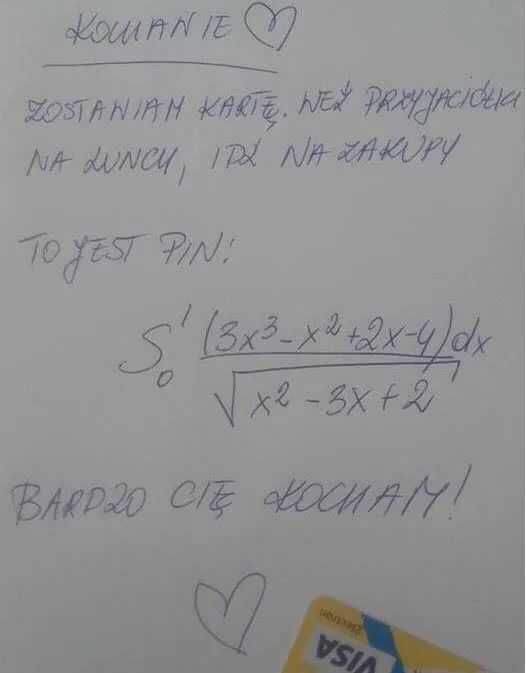 KOCHANIE ♡
ZOSTAWIAM KARTĘ. WEŹ PRZYJACIÓŁKI
NA LUNCH, IDŹ NA ZAKUPY
TO JEST PIN:
∫₀¹ (3x³-x²+2x-4)dx / √(x²-3x+2)
BARDZO CIĘ KOCHAM!
♡
Electron
VISA